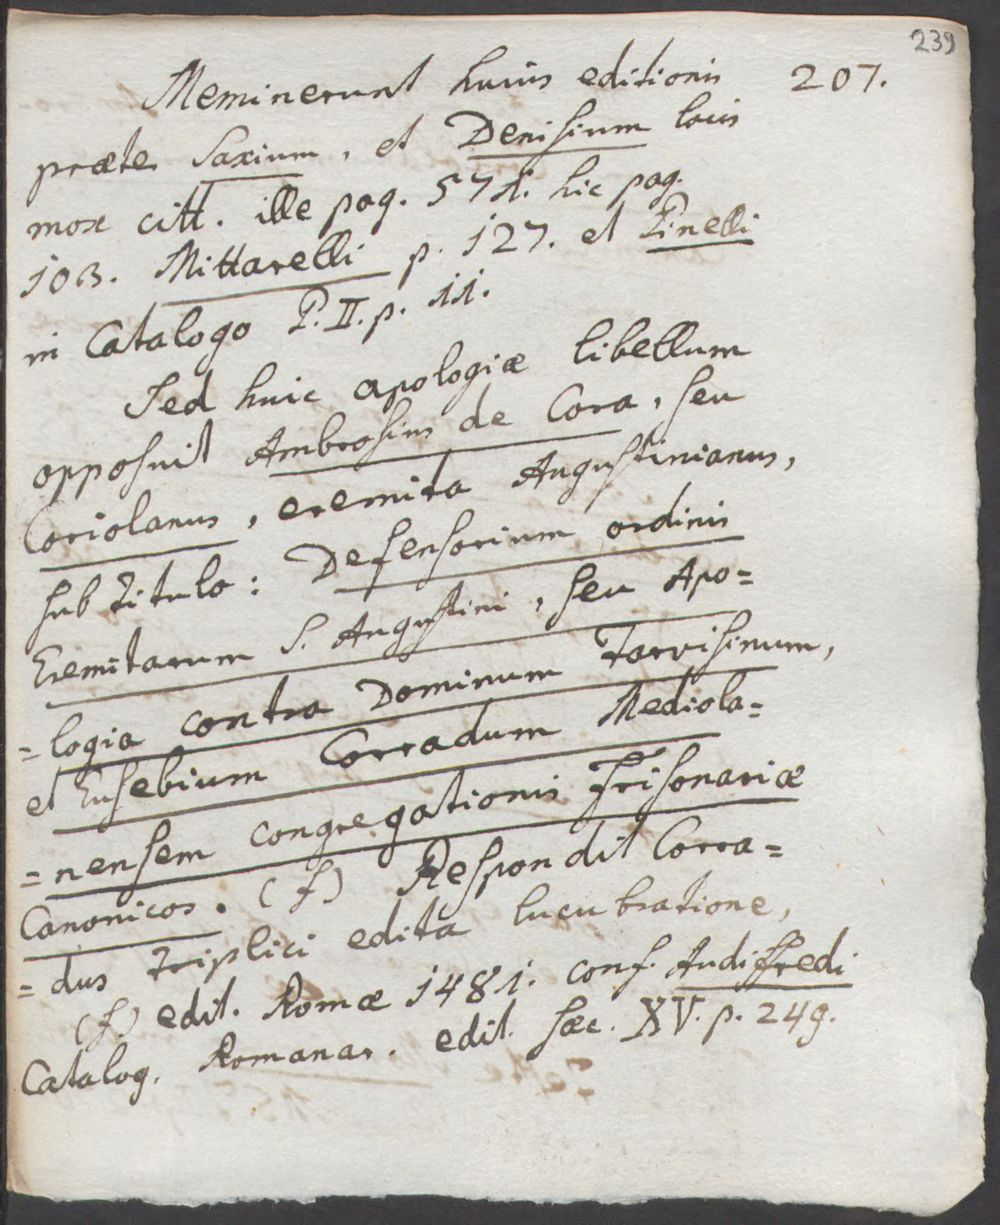 239
Meminerunt huius editionis 207.
præter Saxium, et Denisium locis
mox citt. ille pag. 571. hic pag.
103. Mittarelli p. 127. et Pinelli
in Catalogo P. II. p. 11.
Sed huic apologiæ libellum
opposuit Ambrosius de Cora, seu
Coriolanus, eremita Augustinianus,
sub titulo: Defensorium ordinis
Eremitarum S. Augustini, seu Apo=
=logia contra Dominum Tarvisinum,
et Eusebium Corradum Mediola=
=nensem congregationis Frisonariæ
Canonicos. (f) Respondit Corra=
=dus triplici edita lucubratione,
(f) edit. Romæ 1481. conf. Audifredi
Catalog. Romanar. edit. sæc. XV. p. 249.